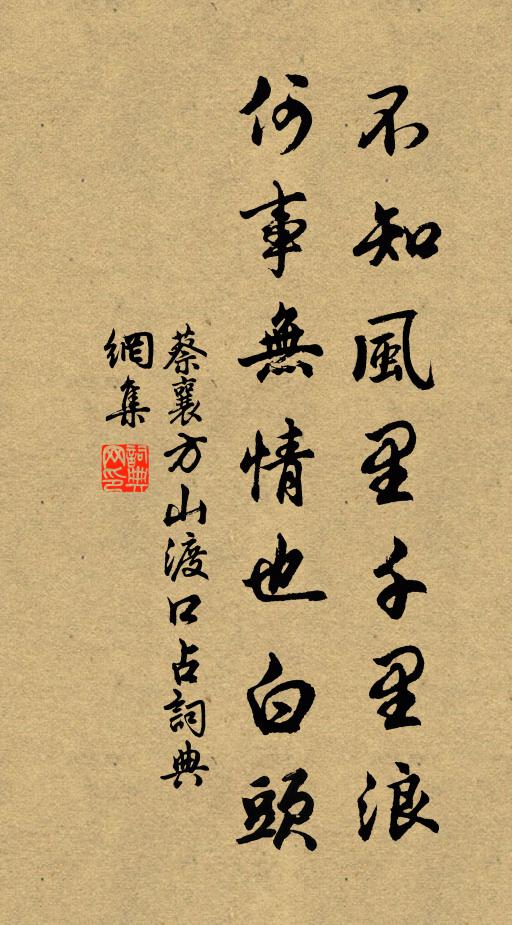 不知風里千里浪
何事無情也白頭
蔡襄方山渡口占詞典
網集
詞典网印